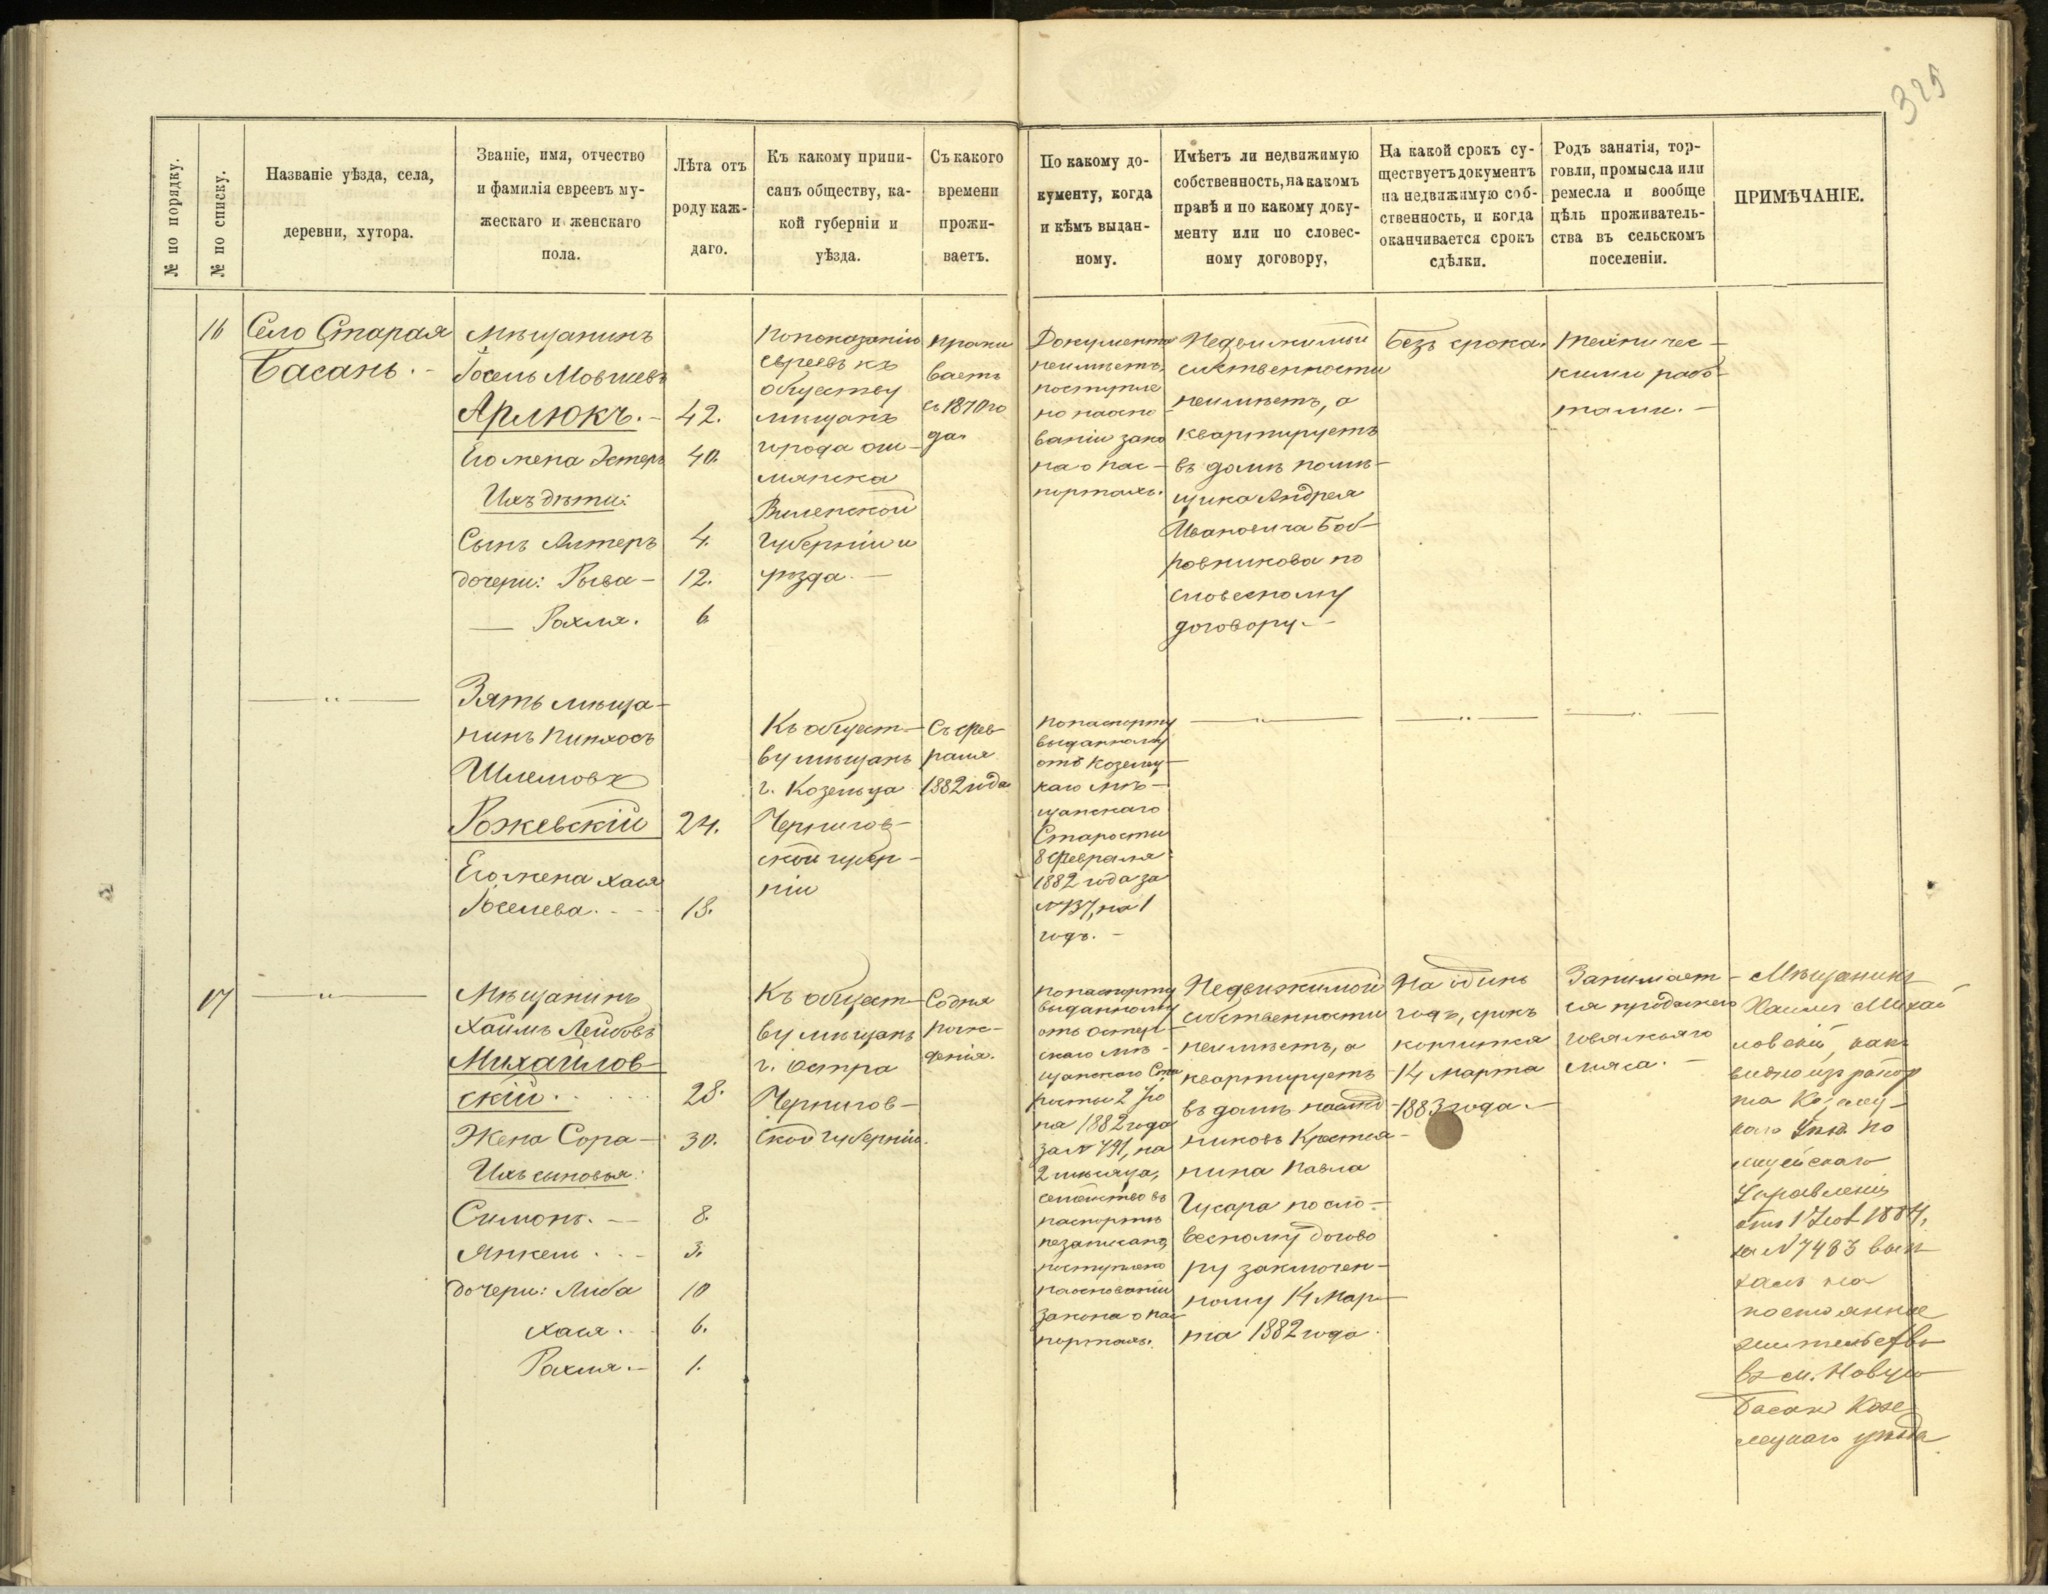 325
№ по порядку.
№ по списку.
Названіе уѣзда, села,
деревни, хутора.
Званіе, имя, отчество
и фамилія евреевъ му-
жескаго и женскаго
пола.
Лѣта отъ
роду каж-
даго.
Къ какому припи-
санъ обществу, ка-
кой губерніи и
уѣзда.
Съ какого
времени
прожи-
ваетъ.
По какому до-
кументу, когда
и кѣмъ выдан-
ному.
Имѣетъ ли недвижимую
собственность, на какомъ
правѣ и по какому доку-
менту или по словес-
ному договору,
На какой срокъ су-
ществуетъ документъ
на недвижимую соб-
ственность, и когда
оканчивается срокъ
сдѣлки.
Родъ занятія, тор-
говли, промысла или
ремесла и вообще
цѣль проживатель-
ства въ сельскомъ
поселеніи.
ПРИМѢЧАНІЕ.
16
Село Старая
Басань. -
Мѣщанинъ
Іосель Мовшевъ
Арлюкъ. - 42.
Его жена Эстеръ 40.
Ихъ дѣти:
Сынъ Алтеръ 4.
дочери: Рыва - 12.
— Рахля. 6
По показанію
евреевъ къ
обществу
мѣщанъ
города Ош-
мянска
Виленской
губерніи и
уѣзда. —
прожи
ваетъ
съ 1870 го
да.
Документа
неимѣетъ,
поступле
но наосно
ваніи зако
на о пас-
портахъ.
Недвижимый
собственности
неимѣетъ, а
квартируетъ
въ домѣ помѣ-
щика Андрея
Ивановича Боб-
ровникова по
словесному
договору. -
Безъ срока.
Техничес-
кими рабо-
тами. -
— " —
Зять мѣща-
нинъ Пинхосъ
Шлемовъ
Рожевскій 24.
Его жена Хася
Іоселева. - - - 18.
Къ общест-
ву мѣщанъ
г. Козельца
Чернигов-
ской губер-
ніи
Съ фев-
раля
1882 года
По паспорту
выданному
отъ Козелец-
каго мѣ-
щанскаго
Старосты
8 Февраля
1882 года за
№ 137, на 1
годъ. -
— " —
— " —
— " —
17
— " —
Мѣщанинъ
Хаимъ Лейбовъ
Михайлов-
скій. . . . . 28.
Жена Сора - 30.
Ихъ сыновья:
Симонъ. — 8.
Янкель . . - 3.
дочери: Либа 10
Хася. - 6.
Рахля. - 1.
Къ общест-
ву мѣщанъ
г. Остра
Чернигов-
ской губерніи.
Со дня
рож-
денія.
По паспорту
выданному
отъ Остер-
скаго мѣ-
щанскаго Ста
росты 2 Ію
ня 1882 года
за № 491, на
2 мѣсяца,
семейство въ
паспортѣ
незаписано,
поступлено
наоснованіи
закона о пас
портахъ.
Недвижимой
собственности
неимѣетъ, а
квартируетъ
въ домѣ наслѣд-
никовъ Крестья-
нина Павла
Гусара по сло-
весному догово
ру заключен-
ному 14 Мар-
та 1882 года.
На одинъ
годъ, срокъ
кончится
14 Марта
1883 года. -
Занимает-
ся продажею
говяжьяго
мяса. -
Мѣщанинъ
Хаимъ Михай
ловскій, какъ
видно изъ рапор
та Козелец-
каго Уѣзд. По
лицейскаго
Управленія
отъ 1884,
за № 7483 выѣ
халъ на
постоянное
жительство
въ м. Новую
Басань Козе
лецкаго уѣзда